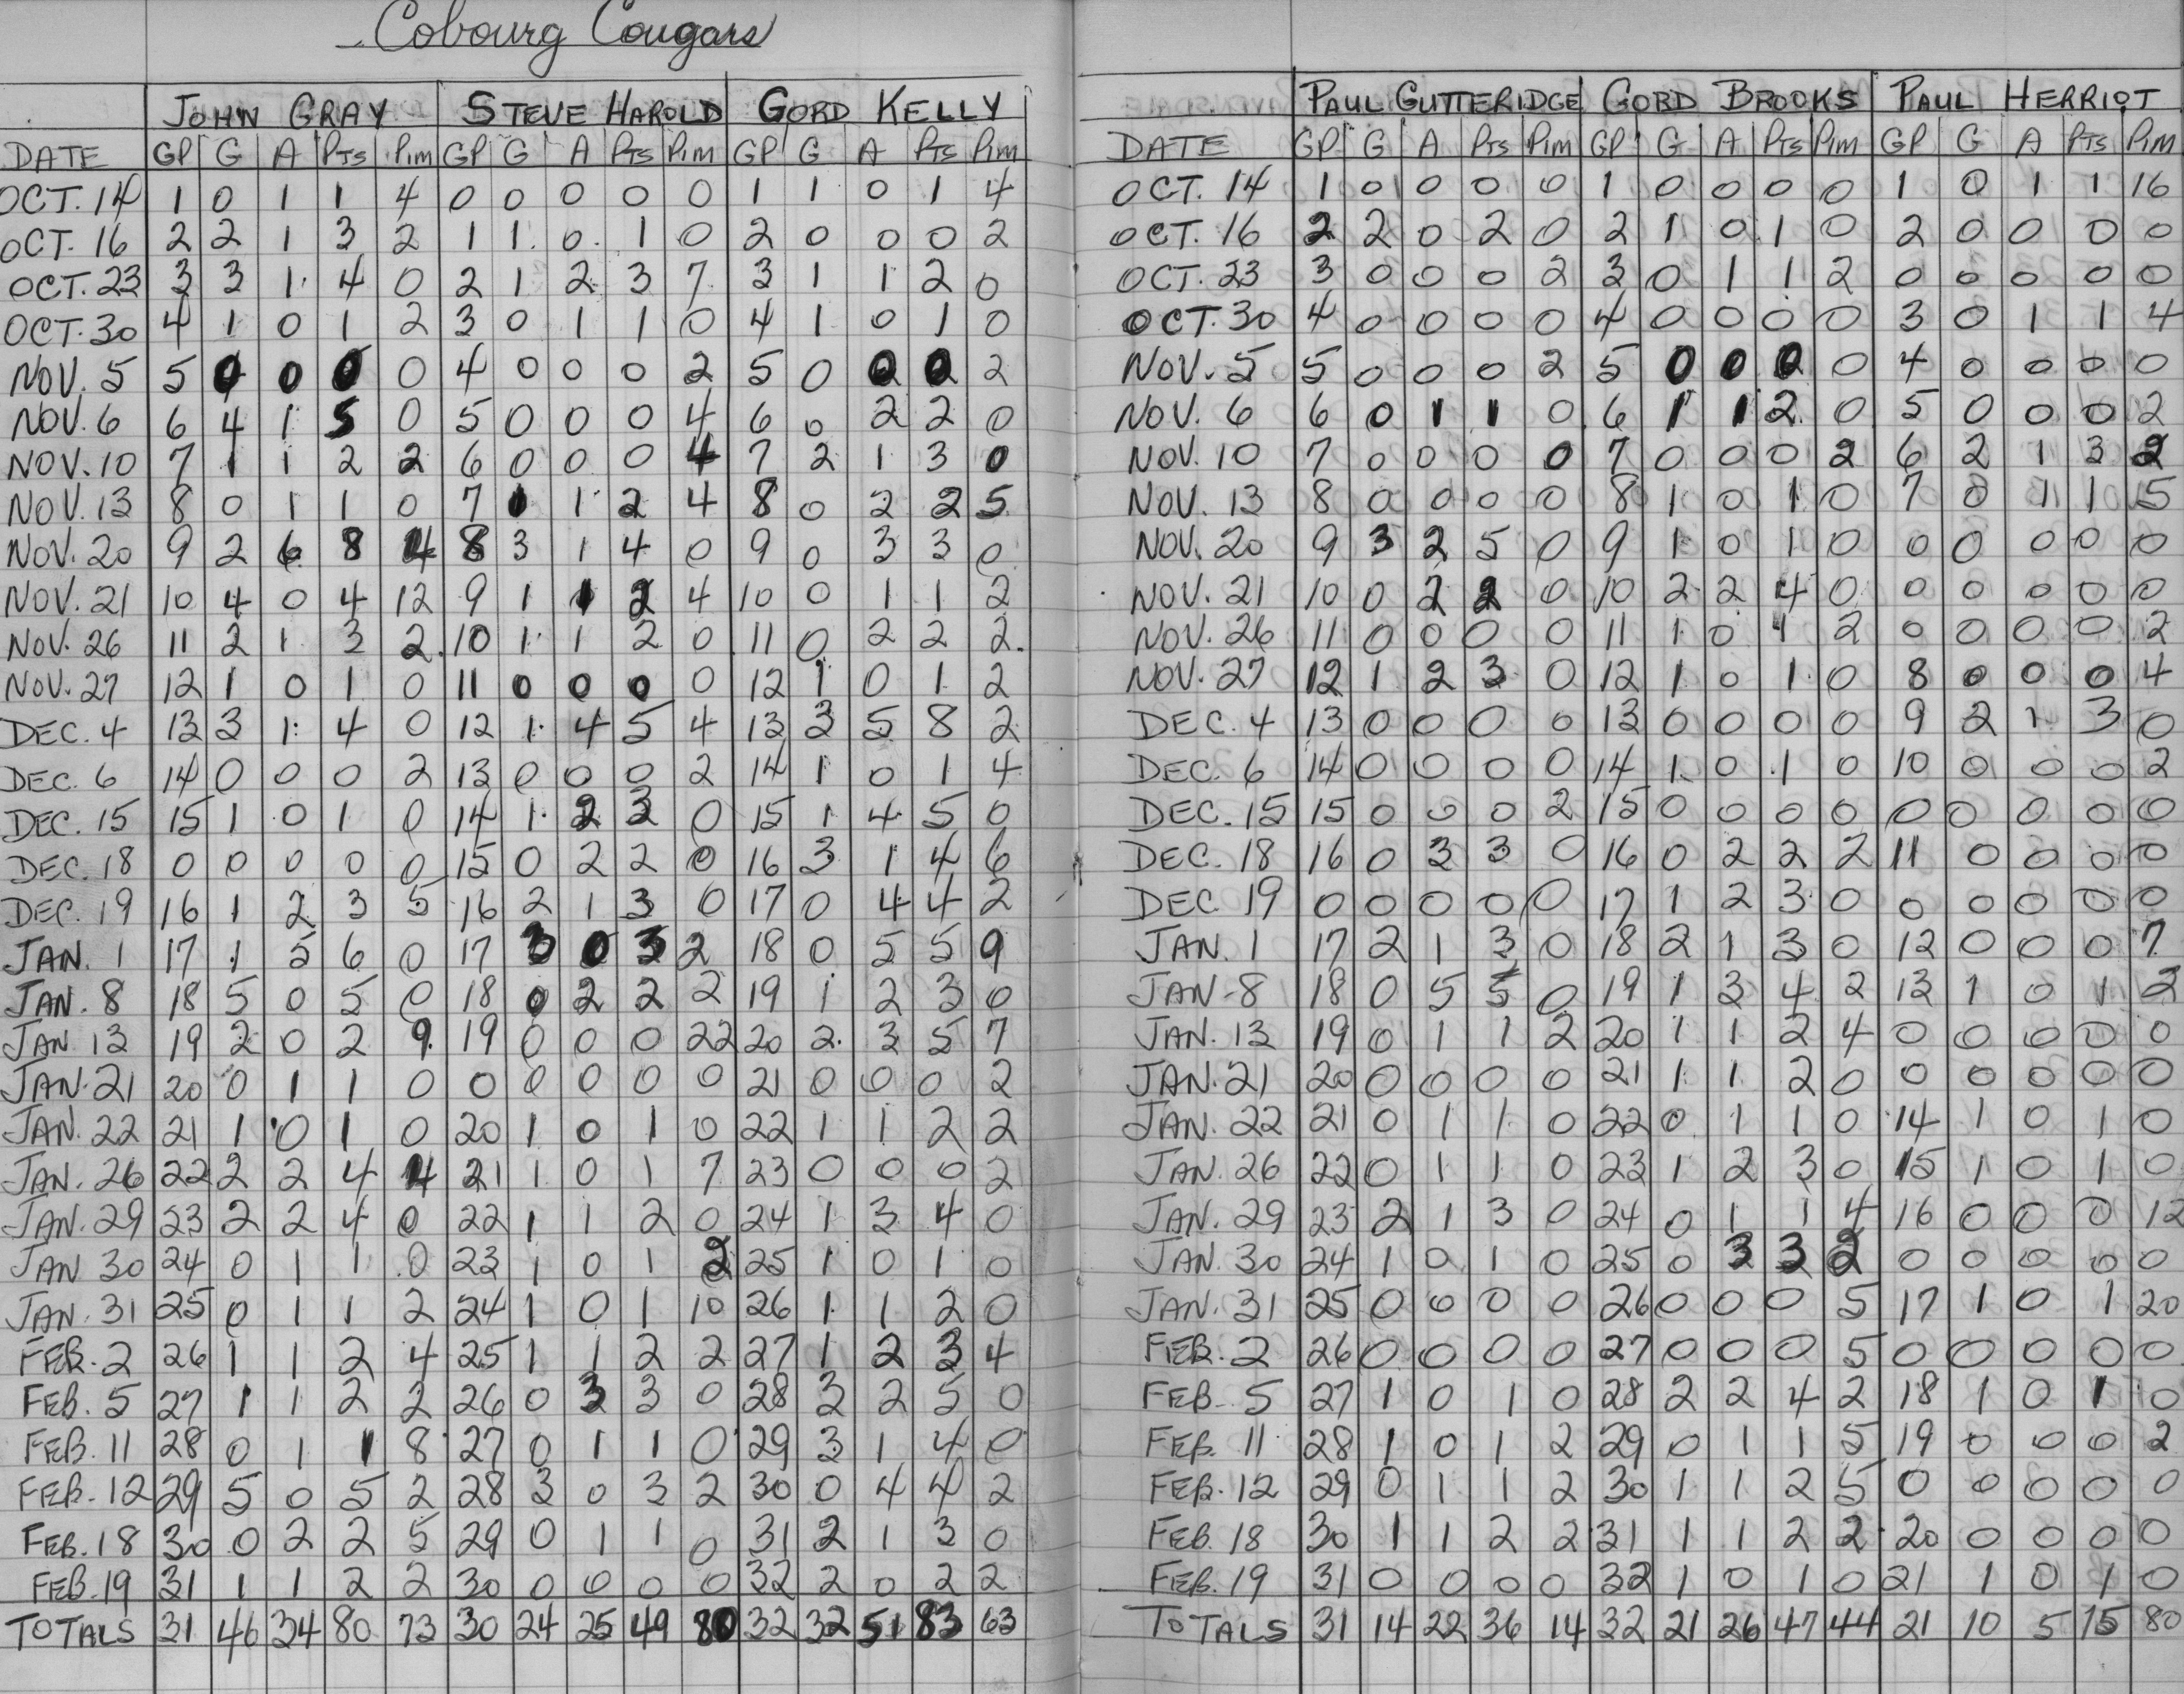 Cobourg Cougars
JOHN GRAY STEVE HAROLD GORD KELLY
DATE GP G A PTS PIM GP G A PTS PIM GP G A PTS PIM
OCT. 14 1 0 1 1 4 0 0 0 0 0 1 1 0 1 4
OCT. 16 2 2 1 3 2 1 1 0 1 0 2 0 0 0 2
OCT. 23 3 3 1 4 0 2 1 2 3 7 3 1 1 2 0
OCT. 30 4 1 0 1 2 3 0 1 1 0 4 1 0 1 0
NOV. 5 5 0 0 0 0 4 0 0 0 2 5 0 0 0 2
NOV. 6 6 4 1 5 0 5 0 0 0 4 6 0 2 2 0
NOV. 10 7 1 1 2 2 6 0 0 0 4 7 2 1 3 0
NOV. 13 8 0 1 1 0 7 1 1 2 4 8 0 2 2 5
NOV. 20 9 2 6 8 4 8 3 1 4 0 9 0 3 3 0
NOV. 21 10 4 0 4 12 9 1 1 2 4 10 0 1 1 2
NOV. 26 11 2 1 3 2 10 1 1 2 0 11 0 2 2 2
NOV. 27 12 1 0 1 0 11 0 0 0 0 12 1 0 1 2
DEC. 4 13 3 1 4 0 12 1 4 5 4 13 3 5 8 2
DEC. 6 14 0 0 0 2 13 0 0 0 2 14 1 0 1 4
DEC. 15 15 1 0 1 0 14 1 2 3 0 15 1 4 5 0
DEC. 18 0 0 0 0 0 15 0 2 2 0 16 3 1 4 6
DEC. 19 16 1 2 3 5 16 2 1 3 0 17 0 4 4 2
JAN. 1 17 1 5 6 0 17 3 0 3 2 18 0 5 5 9
JAN. 8 18 5 0 5 0 18 0 2 2 2 19 1 2 3 0
JAN 13 19 2 0 2 9 19 0 0 0 22 20 2 3 5 7
JAN. 21 20 0 1 1 0 0 0 0 0 0 21 0 0 0 2
JAN. 22 21 1 0 1 0 20 1 0 1 0 22 1 1 2 2
JAN. 26 22 2 2 4 4 21 1 0 1 7 23 0 0 0 2
JAN. 29 23 2 2 4 0 22 1 1 2 0 24 1 3 4 0
JAN 30 24 0 1 1 0 23 1 0 1 2 25 1 0 1 0
JAN. 31 25 0 1 1 2 24 1 0 1 10 26 1 1 2 0
FEB. 2 26 1 1 2 4 25 1 1 2 2 27 1 2 3 4
FEB. 5 27 1 1 2 2 26 0 3 3 0 28 3 2 5 0
FEB. 11 28 0 1 1 8 27 0 1 1 0 29 3 1 4 0
FEB. 12 29 5 0 5 2 28 3 0 3 2 30 0 4 4 2
FEB. 18 30 0 2 2 5 29 0 1 1 0 31 2 1 3 0
FEB. 19 31 1 1 2 2 30 0 0 0 0 32 2 0 2 2
TOTALS 31 46 34 80 73 30 24 25 49 80 32 32 51 83 63
PAUL GUTTERIDGE GORD BROOKS PAUL HERRIOT
DATE GP G A PTS PIM GP G A PTS PIM GP G A PTS PIM
OCT. 14 1 0 0 0 0 1 0 0 0 0 1 0 1 1 16
OCT. 16 2 2 0 2 0 2 1 0 1 0 2 0 0 0 0
OCT. 23 3 0 0 0 2 3 0 1 1 2 0 0 0 0 0
OCT. 30 4 0 0 0 0 4 0 0 0 0 3 0 1 1 4
NOV. 5 5 0 0 0 2 5 0 0 0 0 4 0 0 0 0
NOV. 6 6 0 1 1 0 6 1 1 2 0 5 0 0 0 2
NOV. 10 7 0 0 0 0 7 0 0 0 2 6 2 1 3 2
NOV. 13 8 0 0 0 0 8 1 0 1 0 7 0 1 1 5
NOV. 20 9 3 2 5 0 9 1 0 1 0 0 0 0 0 0
NOV. 21 10 0 2 2 0 10 2 2 4 0 0 0 0 0 0
NOV. 26 11 0 0 0 0 11 1 0 1 2 0 0 0 0 2
NOV. 27 12 1 2 3 0 12 1 0 1 0 8 0 0 0 4
DEC. 4 13 0 0 0 0 13 0 0 0 0 9 2 1 3 0
DEC. 6 14 0 0 0 0 14 1 0 1 0 10 0 0 0 2
DEC. 15 15 0 0 0 2 15 0 0 0 0 0 0 0 0 0
DEC. 18 16 0 3 3 0 16 0 2 2 2 11 0 0 0 0
DEC. 19 0 0 0 0 0 17 1 2 3 0 0 0 0 0 0
JAN. 1 17 2 1 3 0 18 2 1 3 0 12 0 0 0 7
JAN-8 18 0 5 5 0 19 1 3 4 2 13 1 0 1 2
JAN. 13 19 0 1 1 2 20 1 1 2 4 0 0 0 0 0
JAN. 21 20 0 0 0 0 21 1 1 2 0 0 0 0 0 0
JAN. 22 21 0 1 1 0 22 0 1 1 0 14 1 0 1 0
JAN. 26 22 0 1 1 0 23 1 2 3 0 15 1 0 1 0
JAN. 29 23 2 1 3 0 24 0 1 1 4 16 0 0 0 12
JAN. 30 24 1 0 1 0 25 0 3 3 2 0 0 0 0 0
JAN. 31 25 0 0 0 0 26 0 0 0 5 17 1 0 1 20
FEB. 2 26 0 0 0 0 27 0 0 0 5 0 0 0 0 0
FEB. 5 27 1 0 1 0 28 2 2 4 2 18 1 0 1 0
FEB. 11 28 1 0 1 2 29 0 1 1 5 19 0 0 0 2
FEB. 12 29 0 1 1 2 30 1 1 2 5 0 0 0 0 0
FEB. 18 30 1 1 2 2 31 1 1 2 2 20 0 0 0 0
FEB. 19 31 0 0 0 0 32 1 0 1 0 21 1 0 1 0
TOTALS 31 14 22 36 14 32 21 26 47 44 21 10 5 15 80